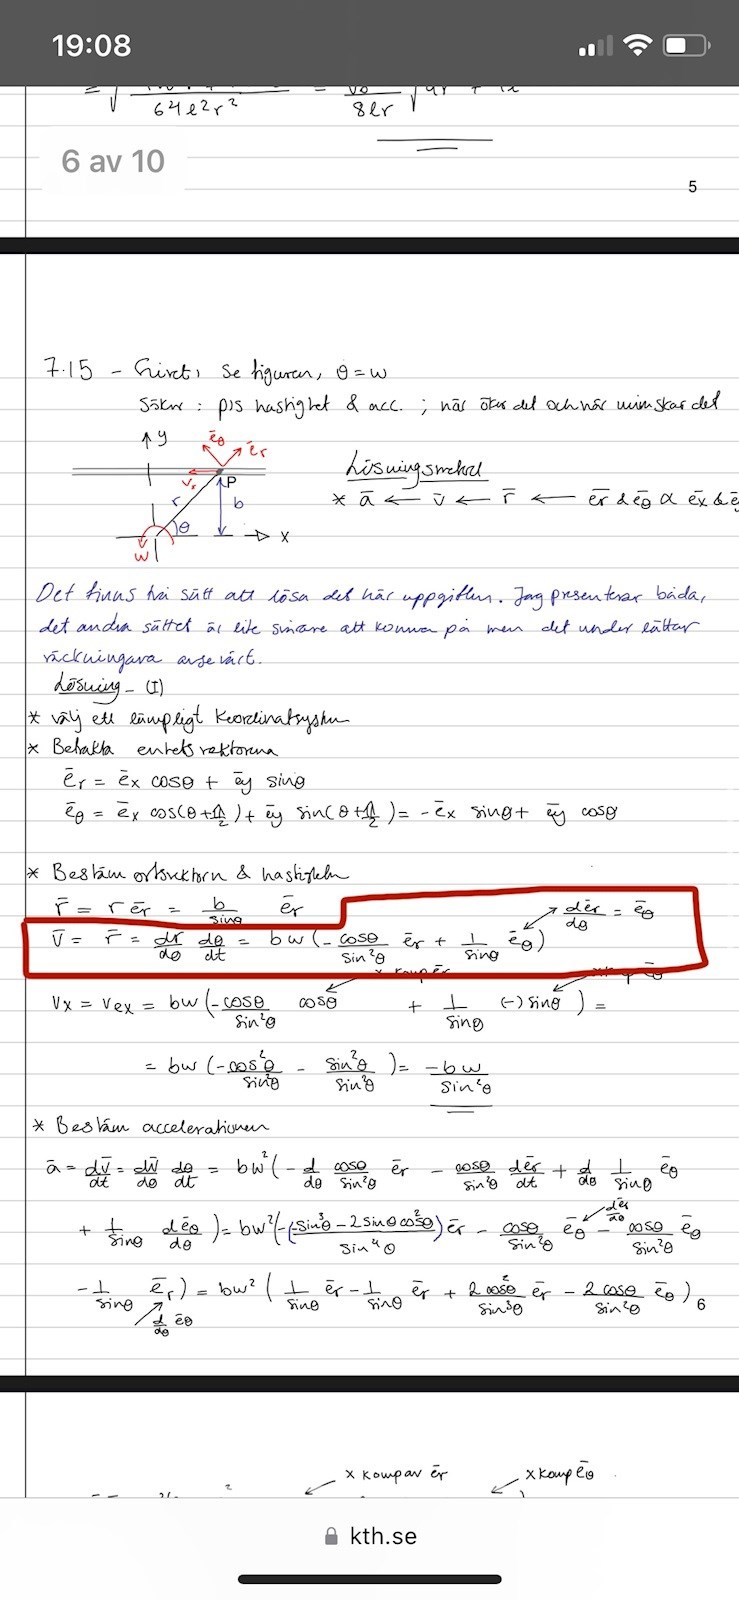 19:08
64l²r²
8lr
6 av 10
5
7.15 - Givet: se figuren, θ̇ = w
Söker: p:s hastighet & acc. ; när ökar det och när minskar det
y
ē_θ
ē_r
v_x
P
r
b
θ
x
w
Lösningsmetod
* ā ← v̄ ← r̄ ← ē_r & ē_θ ∝ ē_x & ē
Det finns två sätt att lösa det här uppgiften. Jag presenterar båda,
det andra sättet är lite svårare att komma på men det underlättar
räckningarna avsevärt.
Lösning - (I)
* välj ett lämpligt koordinatsystem
* Betrakta enhetsvektorerna
ē_r = ē_x cosθ + ē_y sinθ
ē_θ = ē_x cos(θ+π/2) + ē_y sin(θ+π/2) = -ē_x sinθ + ē_y cosθ
* Bestäm ortsvektorn & hastigheten
r̄ = r ē_r = b/sinθ ē_r
v̄ = r̄ = dr̄/dθ dθ/dt = bw(-cosθ/sin²θ ē_r + 1/sinθ ē_θ) → dē_r/dθ = ē_θ
x komp ē_r x komp ē_θ
v_x = v ē_x = bw(-cosθ/sin²θ cosθ + 1/sinθ (-) sinθ) =
= bw(-cos²θ/sin²θ - sin²θ/sin²θ) = -bw/sin²θ
* Bestäm accelerationen
ā = dv̄/dt = dv̄/dθ dθ/dt = bw²(-d/dθ cosθ/sin²θ ē_r - cosθ/sin²θ dē_r/dt + d/dθ 1/sinθ ē_θ
+ 1/sinθ dē_θ/dθ) = bw²(-(-sin³θ - 2sinθcos²θ)/sin⁴θ ē_r - cosθ/sin²θ ē_θ ← dē_r/dθ - cosθ/sin²θ ē_θ
- 1/sinθ ē_r) = bw²(1/sinθ ē_r - 1/sinθ ē_r + 2cos²θ/sin³θ ē_r - 2cosθ/sin²θ ē_θ) 6
d/dθ ē_θ
x kompav ē_r x komp ē_θ
kth.se